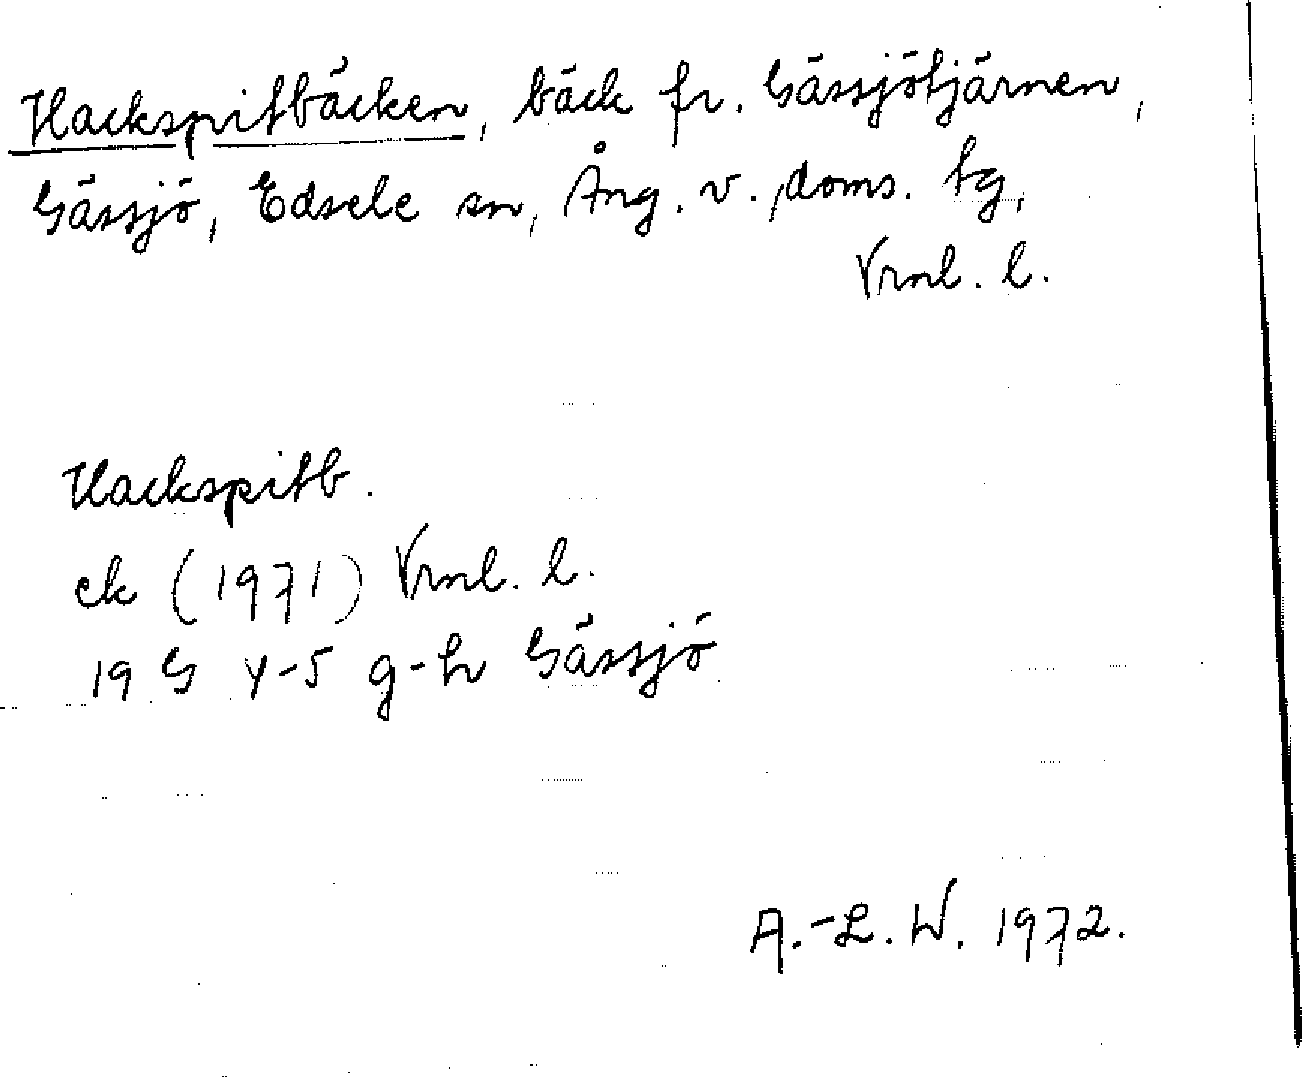 Hackspitbäcken, bäck fr. Gässjötjärnen,
Gässjö, Edsele sn, Ång. v. doms. tg,
Vrnl. l.
Hackspitb.
ek (1971) Vrnl. l.
19 G 4-5 g-h Gässjö
A.-L. W. 1972.